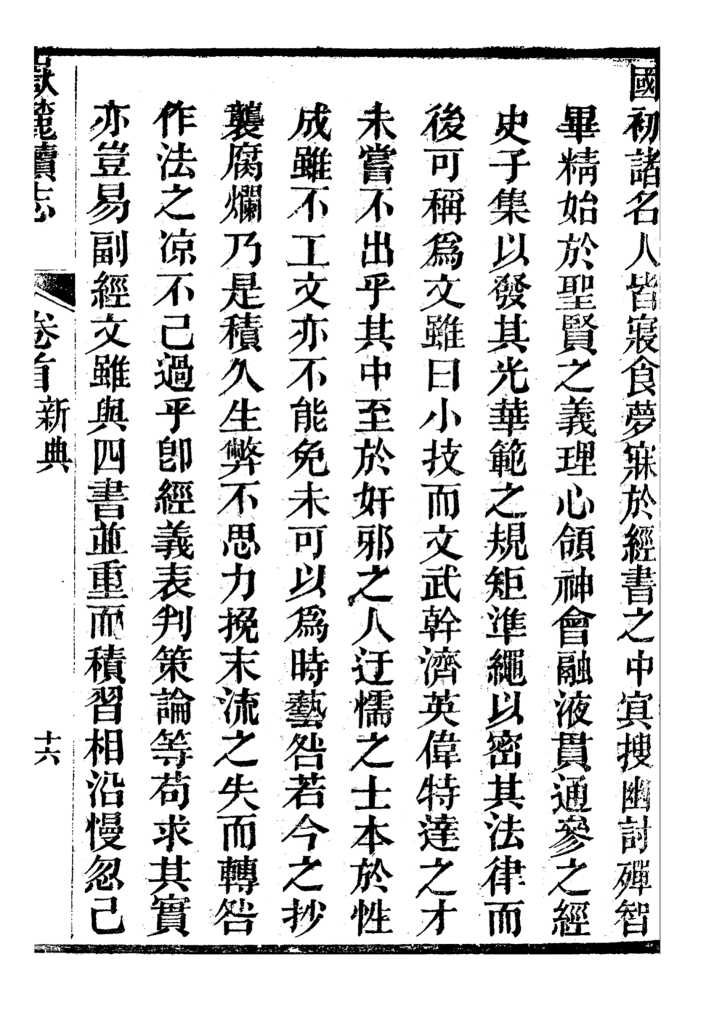 國初諸名人皆寢食夢寐於經書之中㝠搜幽討殫智
畢精始於聖賢之義理心領神會融液貫通參之經
史子集以發其光華範之規矩準繩以密其法律而
後可稱爲文雖曰小技而文武幹濟英偉特達之才
未嘗不出乎其中至於奸邪之人迂懦之士本於性
成雖不工文亦不能免未可以爲時藝咎若今之抄
襲腐爛乃是積久生弊不思力挽末流之失而轉咎
作法之凉不已過乎卽經義表判策論等苟求其實
亦豈易副經文雖與四書並重而積習相沿慢忽已
嶽麓續志 卷首 新典 十六